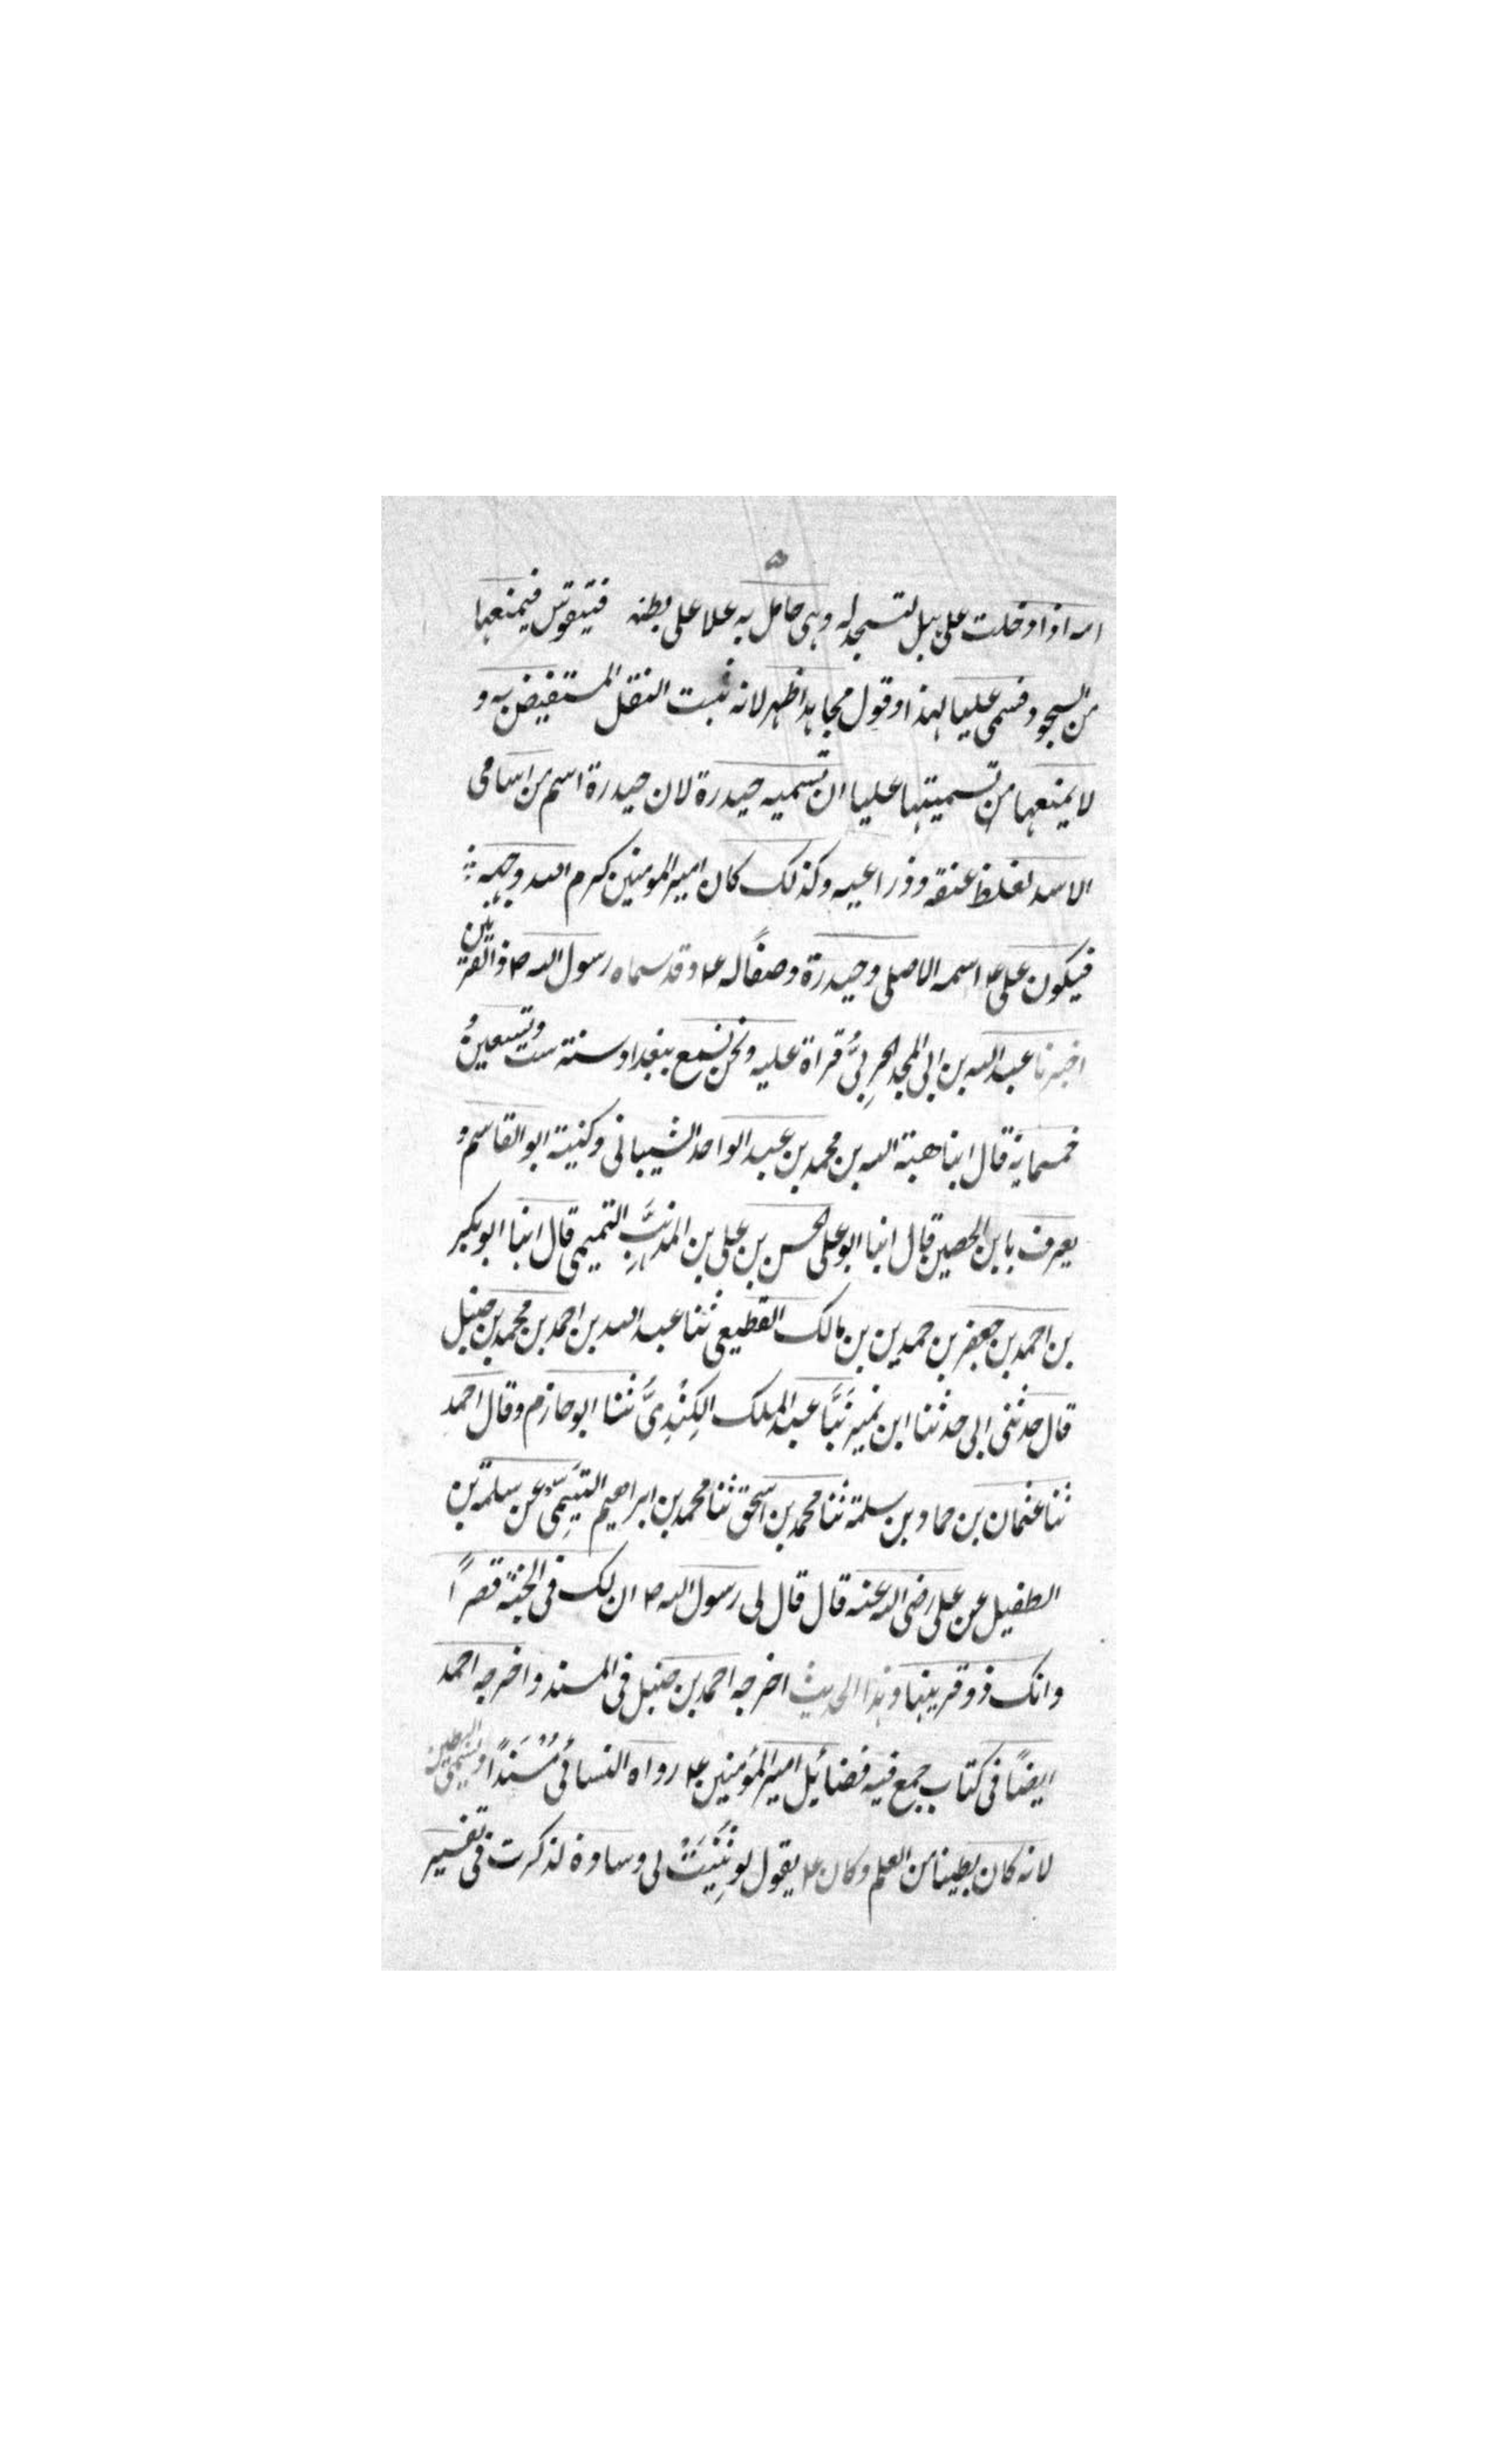 ۵
امه اذا دخلت على هبل لتسجد له وهى حامل به علا على بطنه فيتقوس فيمنعها
من السجود فسمى عليا لهذا وقول مجاهد اظهر لانه ثبت النقل المستفيض به و
لا يمنعها من تسميتها عليا ان تسميه حيدرة لان حيدرة اسم من اسامى
الاسد لغلظ عنقه وذراعيه وكذلك كان امير المومنين كرم الله وجهه
فيكون على ع اسمه الاصلى وحيدرة وصفًا له ع وقد سماه رسول الله ص ذا القرنين
اخبرنا عبد الله بن ابى المجد الحربِىُّ قراة عليه ونحن نسمع ببغداد سنة ست وتسعين وُ
خمسماية قال ابنا هبة الله بن محمد بن عبد الواحد الشيبانى وكنيته ابو القاسم و
يعرف بابن الحصين قال ابنا ابو على الحسن بن على بن المذهِبِ التميمى قال ابنا ابو بكر
بن احمد بن جعفر بن حمدين بن مالك القطيعى ثنا عبد الله بن احمد بن محمد بن حنبل
قال حدثنى ابى حدثنا ابن نمير ثَنَا عبد الملك الكِنْدِىُّ ثنا ابو حازم وقال احمد
ثنا عثمان بن حماد بن سلمة ثنا محمد بن اسحق ثنا محمد بن ابراهيم التَيمِىّ عن سلمة بن
الطفيل عن على رضى الله عنه قال قال لى رسول الله ص ان لك فى الجنة قصرًا
وانك ذو قرينها وهذا الحديث اخرجه احمد بن حنبل فى المسند واخرجه احمد
ايضًا فى كتاب جمع فيه فضائل امير المؤمنين ع رواه النسائى مُسْنَدًا ويسمى البطين
لانه كان بطينا من العلم وكان ع يقول لو ثُنِيَتْ لى وسادة لذكرت فى تفسير